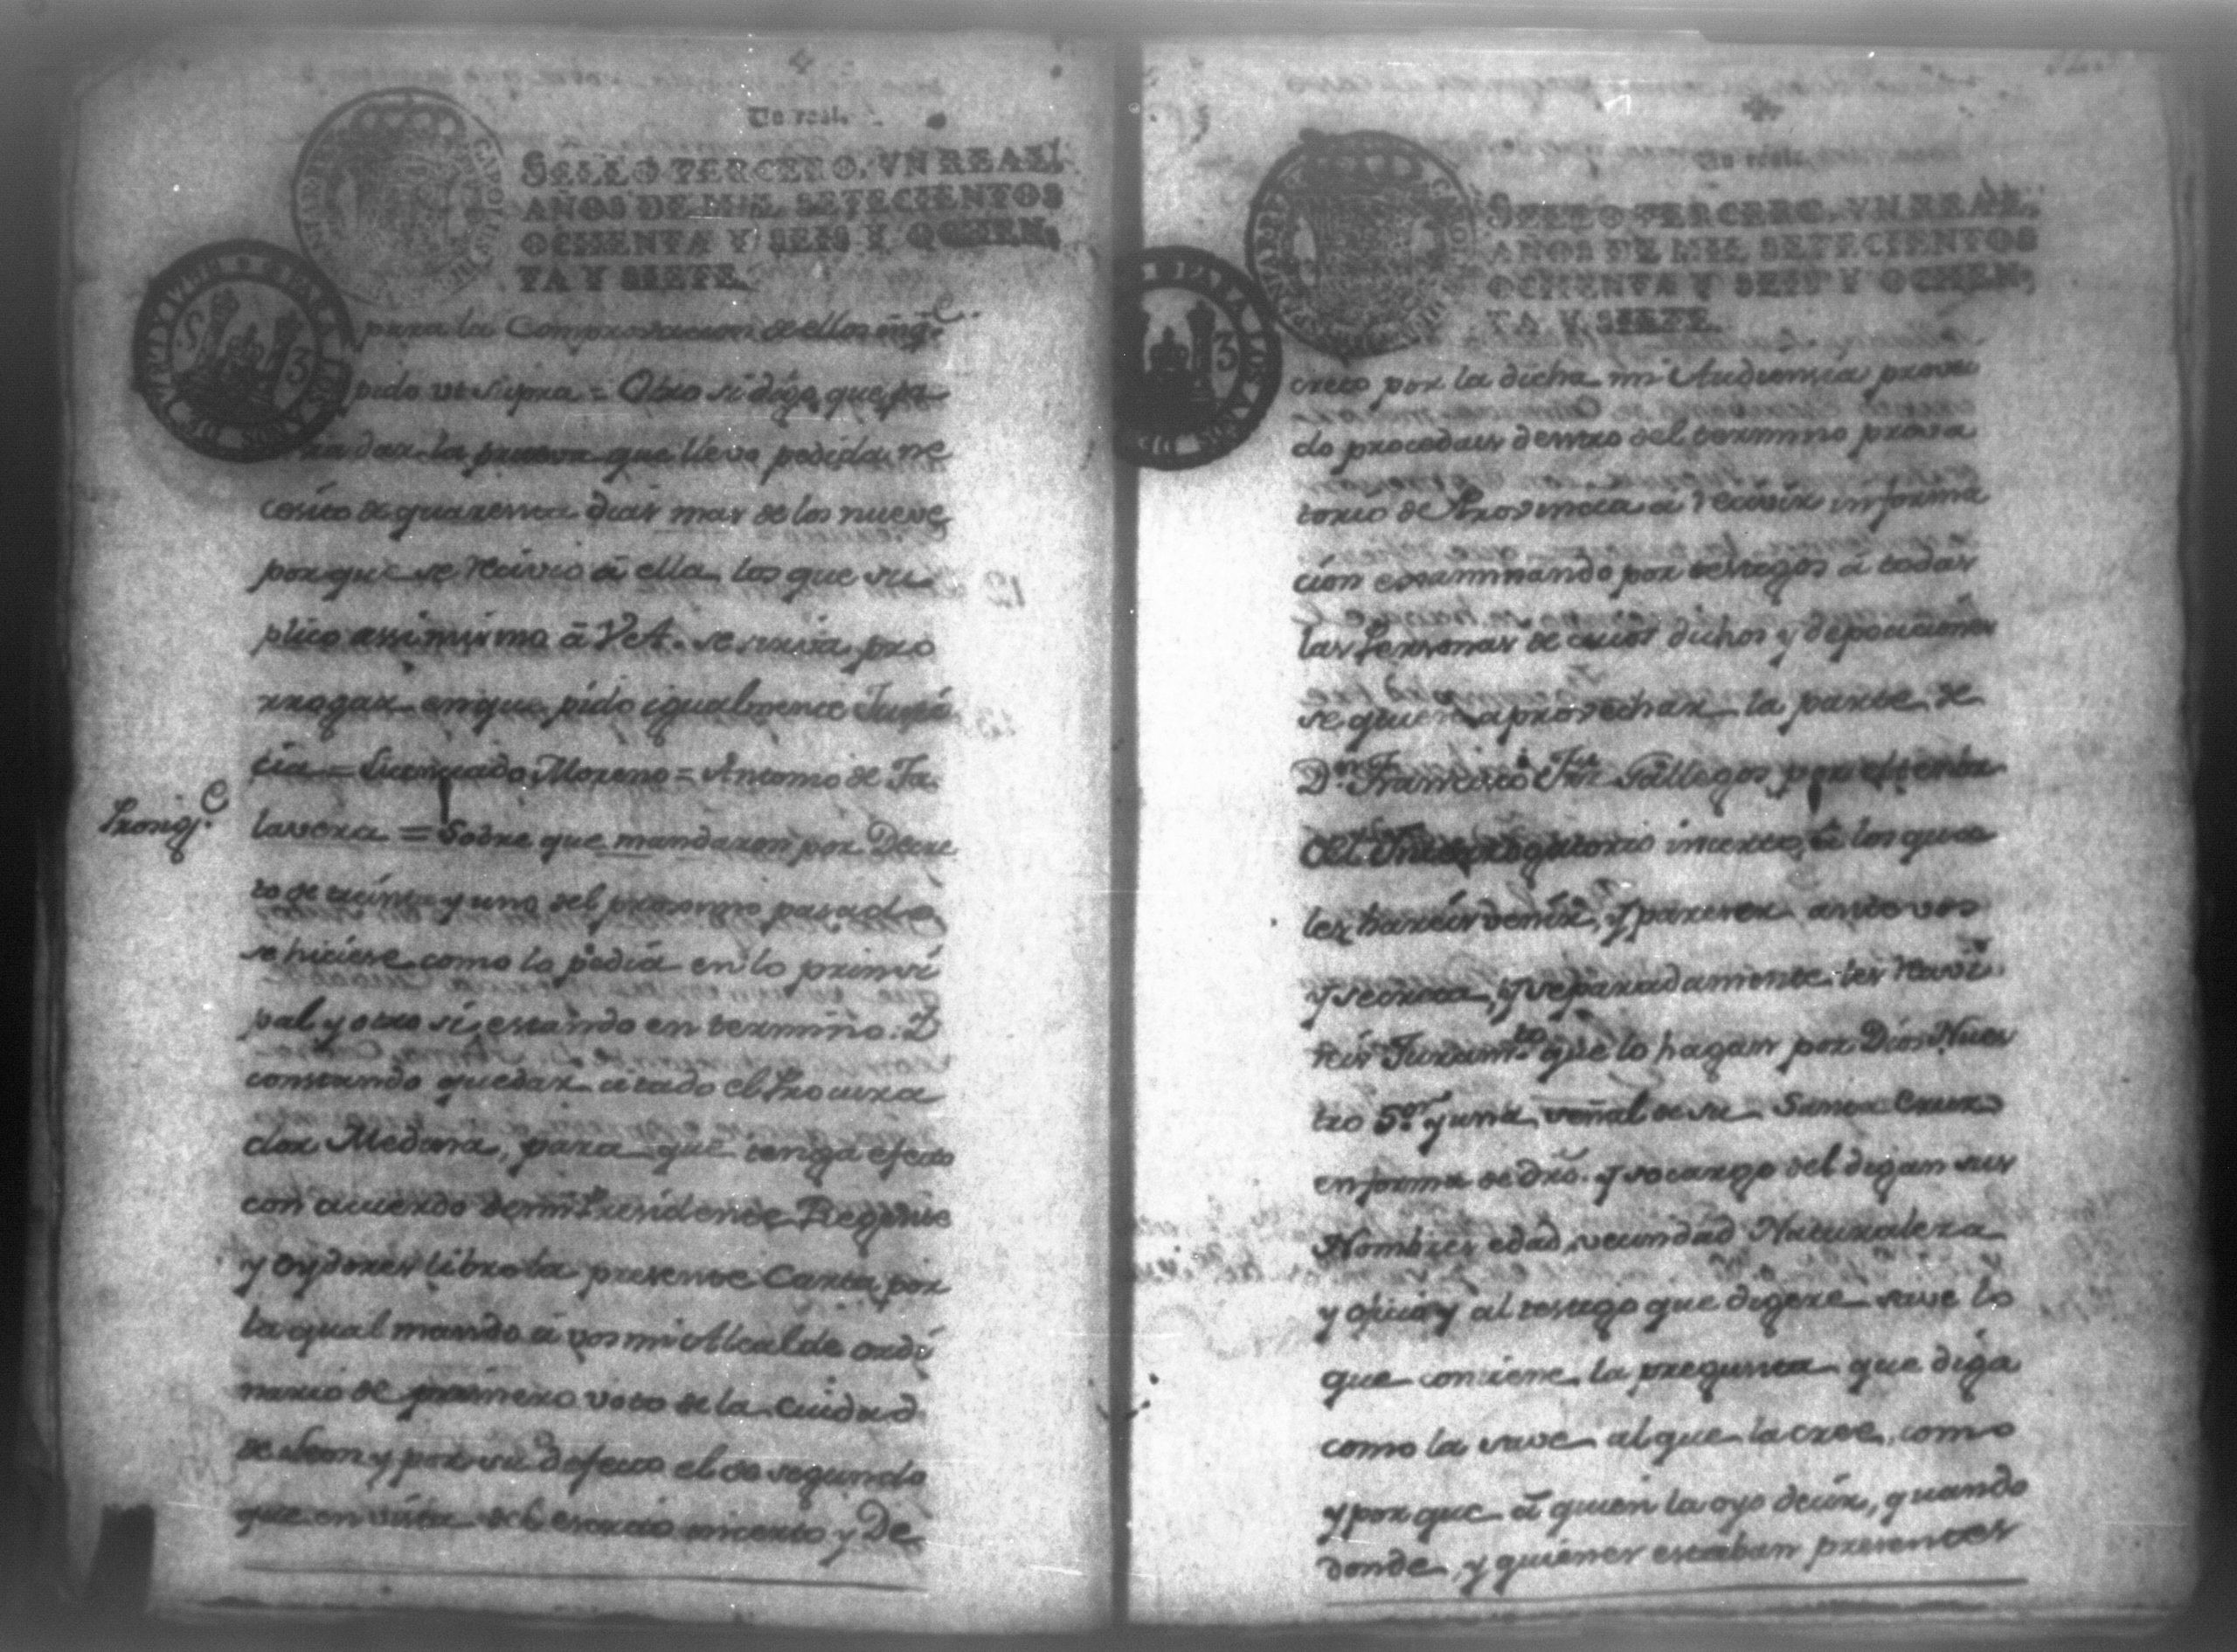 Un real.
SELLO TERCERO, VN REAL,
AÑOS DE MIL SETECIENTOS
OCHENTA Y SEIS Y OCHEN-
TA Y SIETE.
para la Comprovacion de ellos
pido ut supra = Otro si digo que pa
ra dar la prueva que llevo pedida ne
cesito de quarenta dias mas de los nueve
porque se recivio â ella los que su
plico assimismo â V.A. se sirva pro
rrogar en que pido igualmente Justi
cia = Licenciado Moreno = Antonio de Ta
Prosigue
lavera = Sobre que mandaron por Decre
to de treinta y uno del proximo pasado
se hiciese como lo pedia en lo princi
pal y otro si, estando en termino. Y
constando quedar citado el Procura
dor Medina, para que tenga efecto
con acuerdo demi Presidente Regente
y Oydores libro la presente Carta por
la qual mando a vos mi Alcalde ordi
nario de primero voto de la Ciudad
de Leon y por su defecto el de segundo
que en vista del escrito inserto y De
Un real.
SELLO TERCERO, VN REAL,
AÑOS DE MIL SETECIENTOS
OCHENTA Y SEIS Y OCHEN-
TA Y SIETE.
creto por la dicha mi Audiencia provei
do procedais dentro del termino prova
torio de Provincia a recivir informa
cion examinando por testigos â todas
las Personas de cuios dichos y deposiciones
se quiera aprovechar la parte de
Dn. Francisco Gallegos por
el Interrogatorio inserto, â los qua
les hareis venir, y parecer ante vos
y secreta, y separadamente les recivi
reis Juramto. que lo hagan por Dios Nues
tro Sor. y una señal de su Santa Cruz
en forma de dro. y so cargo del digan sus
Nombres edad, vecindad Naturaleza
y oficio y al testigo que digere save lo
que contiene la pregunta que diga
como la save al que la cree, como
y por que â quien la oyo decir, quando
donde, y quienes estaban presentes